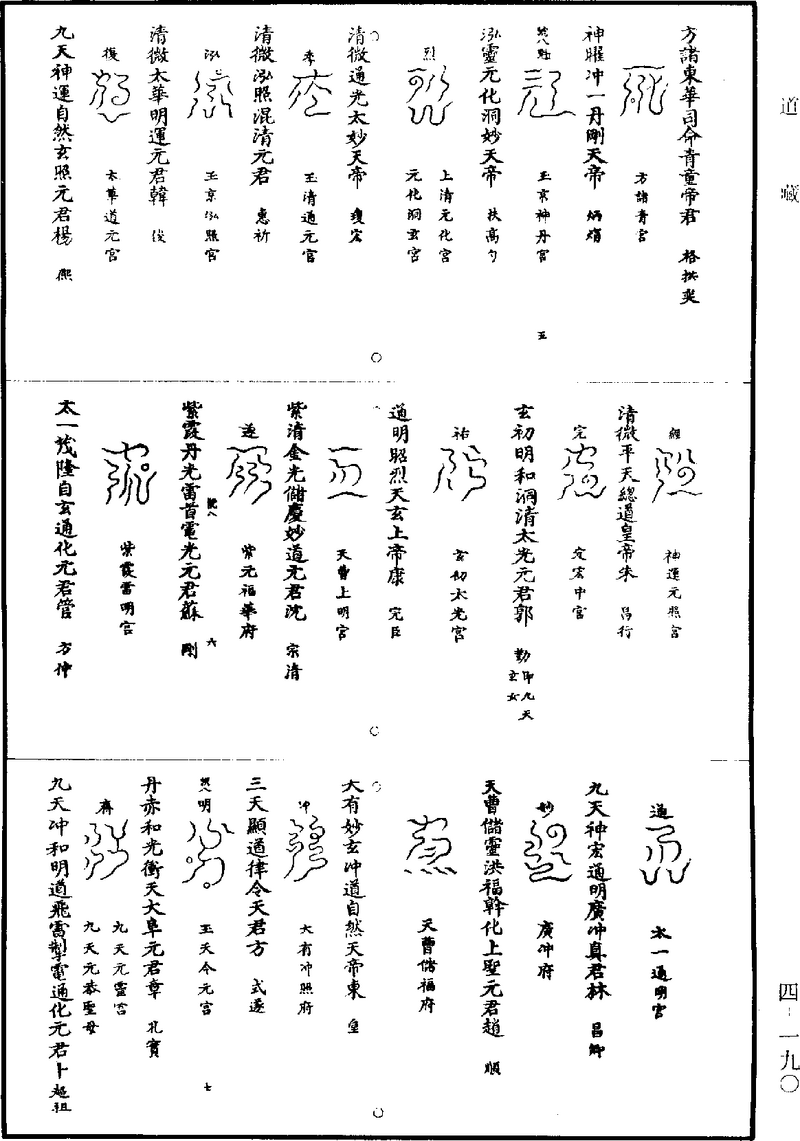 道藏
方諸東華司命青童帝君 格拱奕
方諸青宮
神暉冲一丹剛天帝 炳煥
玉京神丹宮
五
泓靈元化洞妙天帝 扶高勺
烈
上清元化宮
元化洞玄宮
清微通光太妙天帝 瓊宏
玉清通元宮
清微泓照混清元君 惠祈
泓
玉京泓照宮
清微太華明運元君韓 俊
復
太華道元宮
九天神運自然玄照元君楊 熙
經
神運元照宮
清微平天總道皇帝朱 昌行
完
定宏中宮
玄初明和洞清太光元君郭 勤 即九天玄女
祐
玄初太光宮
道明昭烈天玄上帝康 完臣
天曹上明宮
紫清金光儲慶妙道元君沈 宗清
遂
紫元福華府
紫霞丹光雷首電光元君蘇 剛
六
紫霞雷明宮
太一茂隆自玄通化元君管 方仲
通
太一通明宮
九天神宏通明廣冲真君林 昌卿
妙
廣冲府
天曹儲靈洪福幹化上聖元君趙 順
天曹儲福府
大有妙玄冲道自然天帝東 皇
冲
大有冲照府
三天顯道律令天君方 式遂
明
玉天令元宮
七
丹赤和光衝天大阜元君章 孔賓
齊
九天元靈宮
九天元恭聖母
九天冲和明道飛雷掣電通化元君卜 起祖
四-一九〇